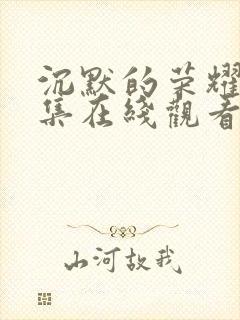 沉默的荣耀
集在綫觀看
山河故我